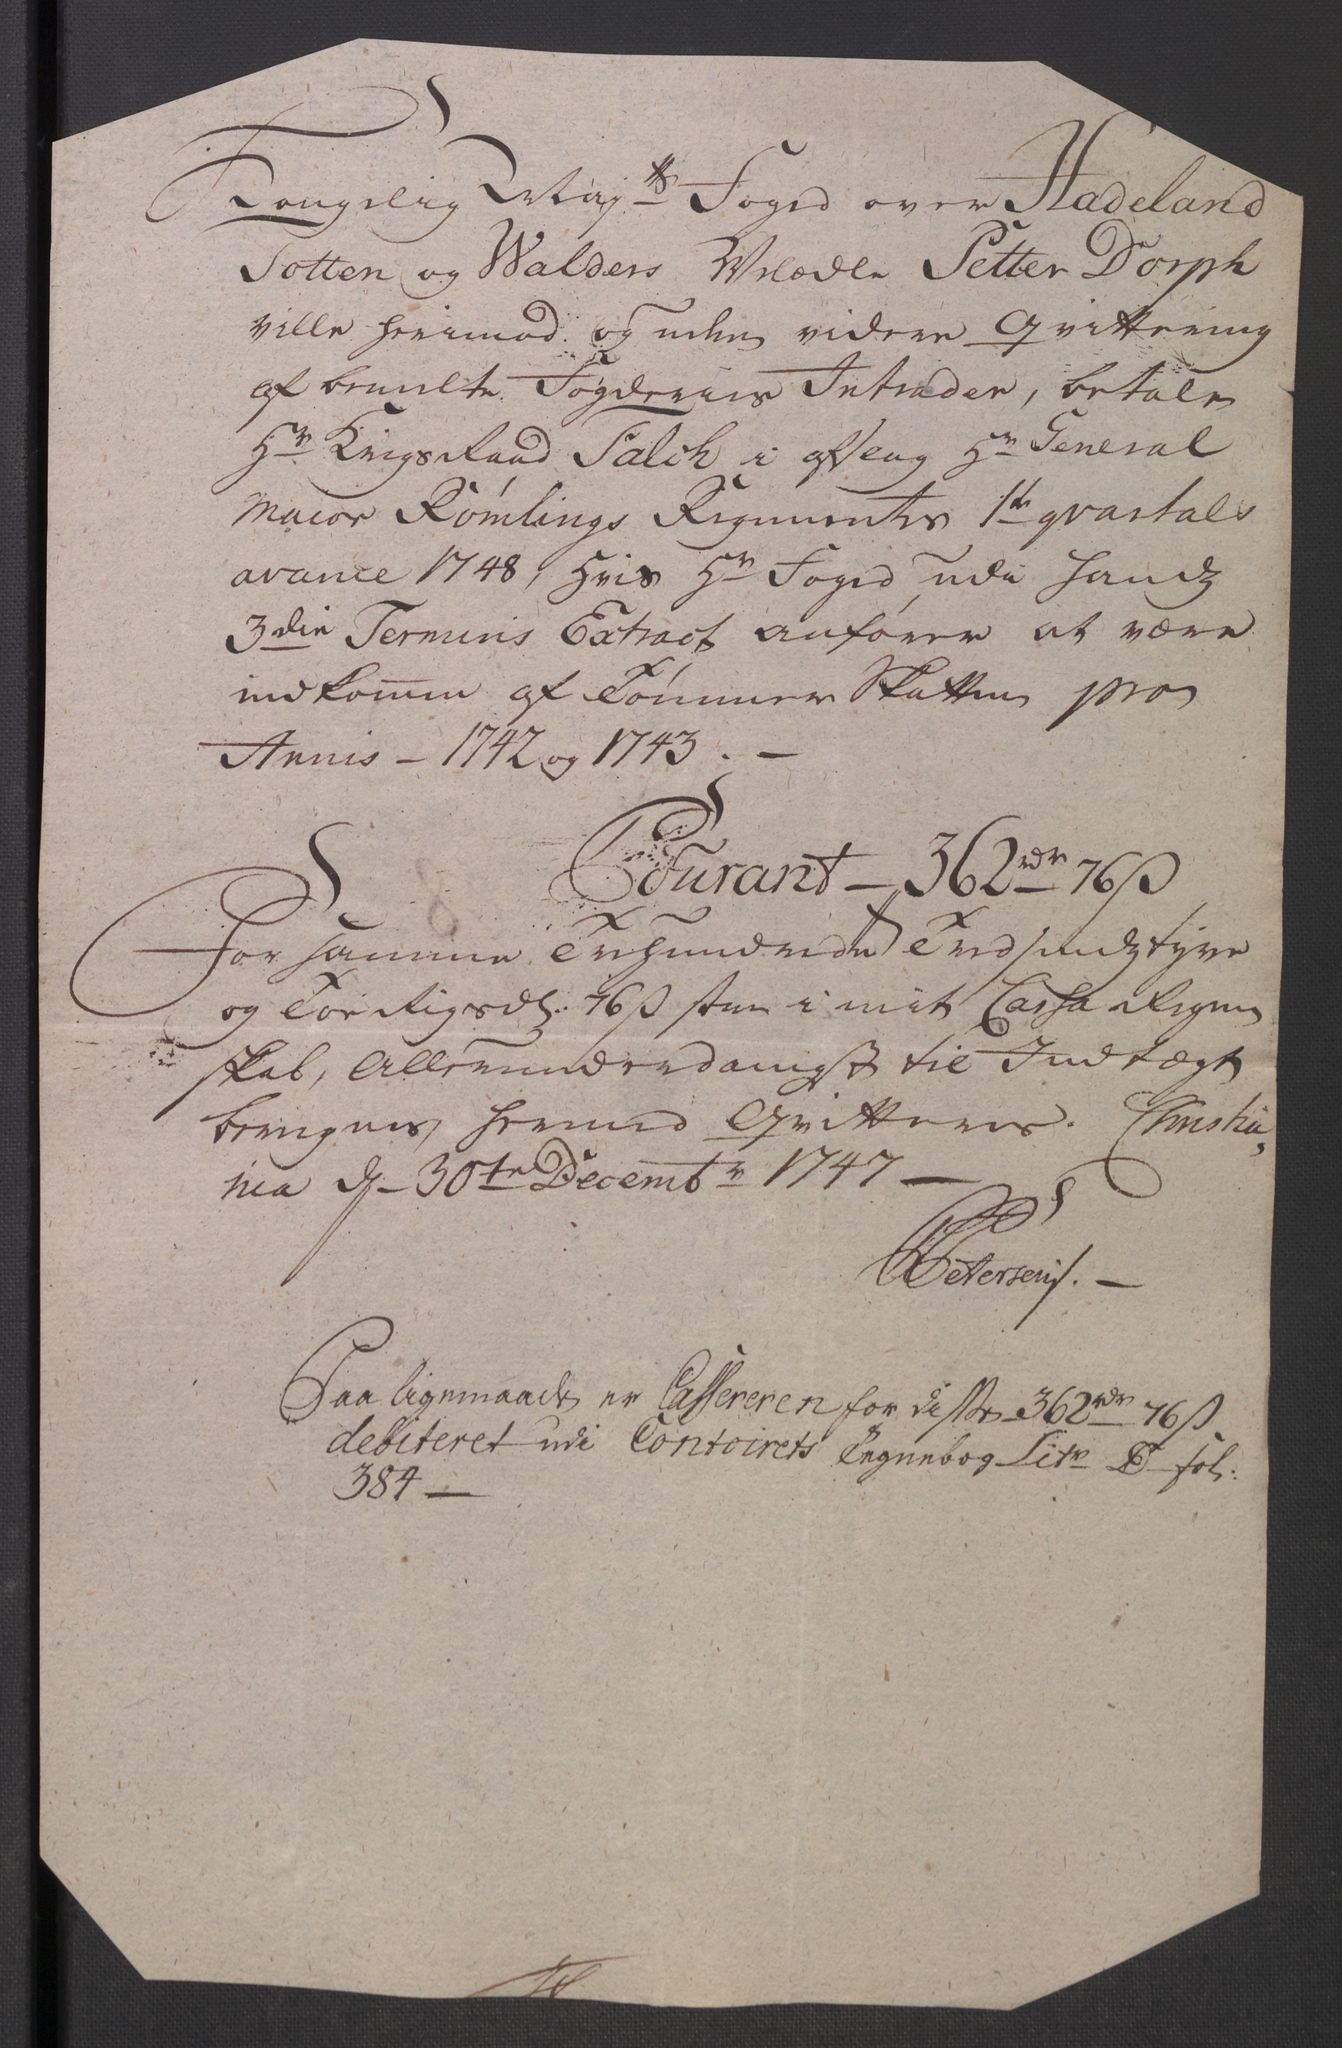 Kongelig Maj:ts Foged over Hadeland
Totten og Walders Velædle Petter Dorph
ville herimod og uden videre Qvittering
af bemelte Fogderies Intrader, betale
Hr Krigs Raad Falch i afseng Hr General
Maior Rømlings Regimentes 1te qvartals
avance 1748, hvis Hr Foged udi hands
3die Termins Extract anfører at være
indkommen af Tømmer Skatten pro
Annis – 1742 og 1743. –
Courant – 362rdr 76ß
For samme Trehundrede Tredsindstyve
og Toe Rigsdl. 76ß som i mit Cassa Regen
skab, Allerunderdanigst til Indtægt
bringes, hermed Qvitteres. Christia,
nia d – 30te Decembr 1747 –
Petersen. –
Saa ligemaade er Cassereren for disse 362rdr 76ß
debiteret udi Contoirets Regnebog Litr B fol:
384 –